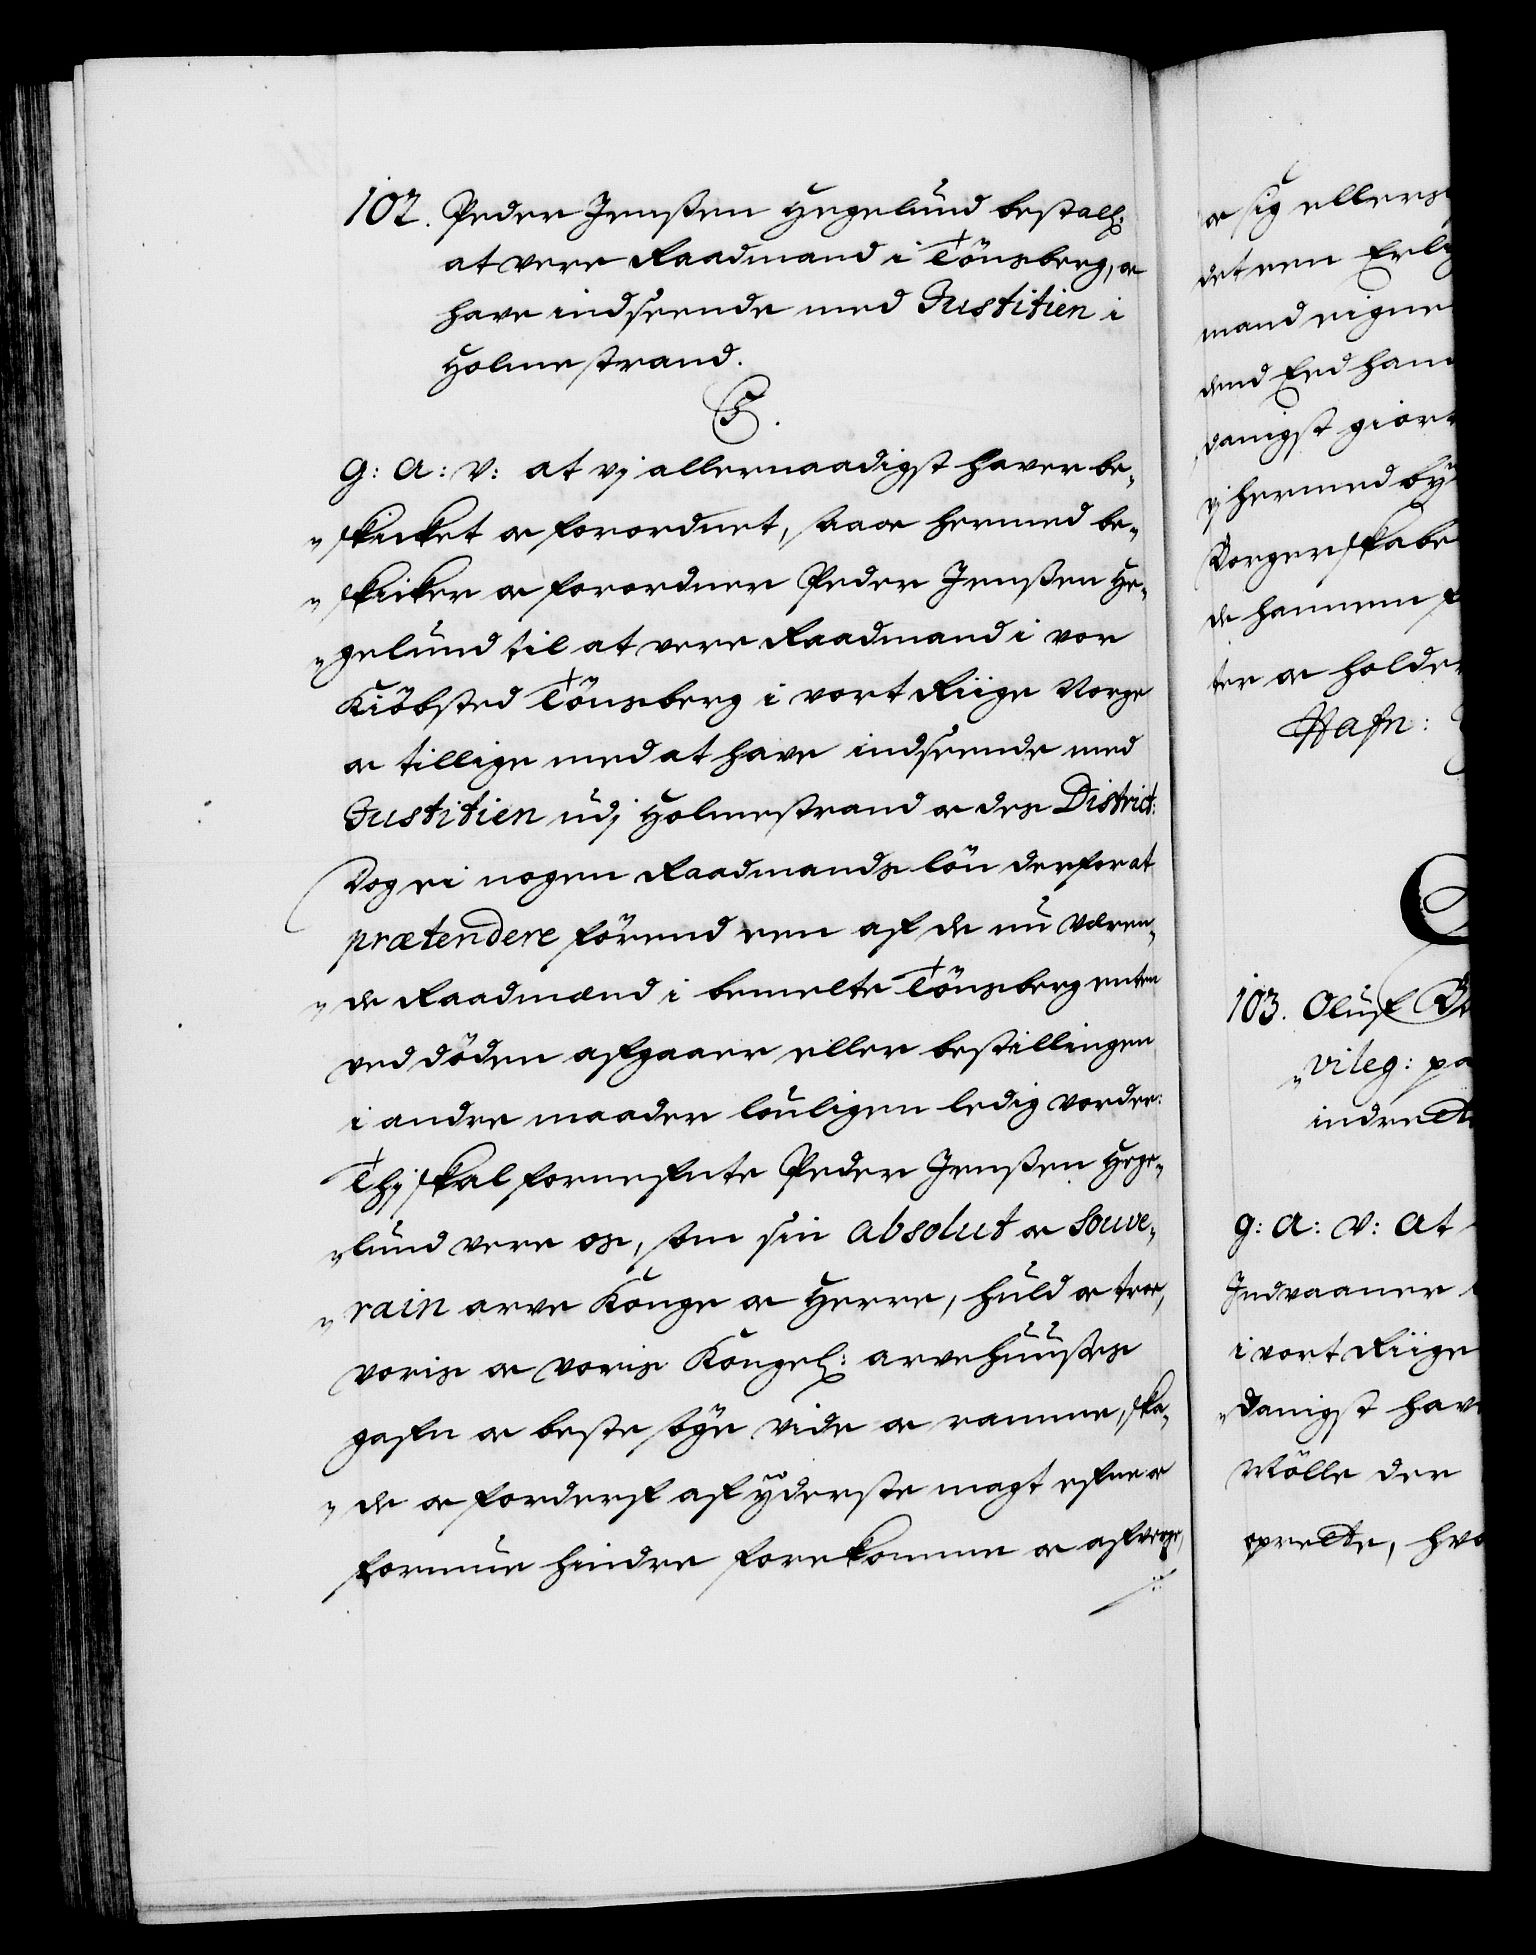 102. Peder Jenßen Hegelund bestall:
at vere Raadmand i Tönsberg, oc
have indseende med Justitien i
Holmestrand.
C5.
G: A: V: at vj allernaadigst haver be-
skicket oc forordnet, saa oc hermed be-
skicker oc forordner Peder Jenßen He-
gelund til at vere Raadmand i vor
Kiöbsted Tönsberg i vort Riige Norge
oc tillige med at have indseende med
Justitien udj Holmestrand oc des District:
Dog ei nogen Raadmands lön derfor at
prætendere förend een af de nu væren-
de Raadmænd i bemelte Tönsberg enten
ved döden afgaaer eller bestillingen
i andre maader louligen ledig vorder:
Thj skal fornefnte Peder Jenßen Hege-
lund vere os, som sin absolut oc Souve-
rain arve Konge oc Herre, huld oc troe,
voris oc voris Kongel: arvehuußes
gafn oc beste söge vide oc ramme, ska-
de oc forderf af yderste magt efne oc
formue hindre forekomme oc afverge,
oc sig ellers
det een Erli
mand eigne
dend Eed hand
danigst giort
vj hermed by
Borgerskabe
de hannem f
ter oc holde
Hafn:
103. Oluf
vileg: pa
indrett
G: A: V: At
Indvaaner
i vort Riige
danigst hav
Mölle der
oprette, hvo